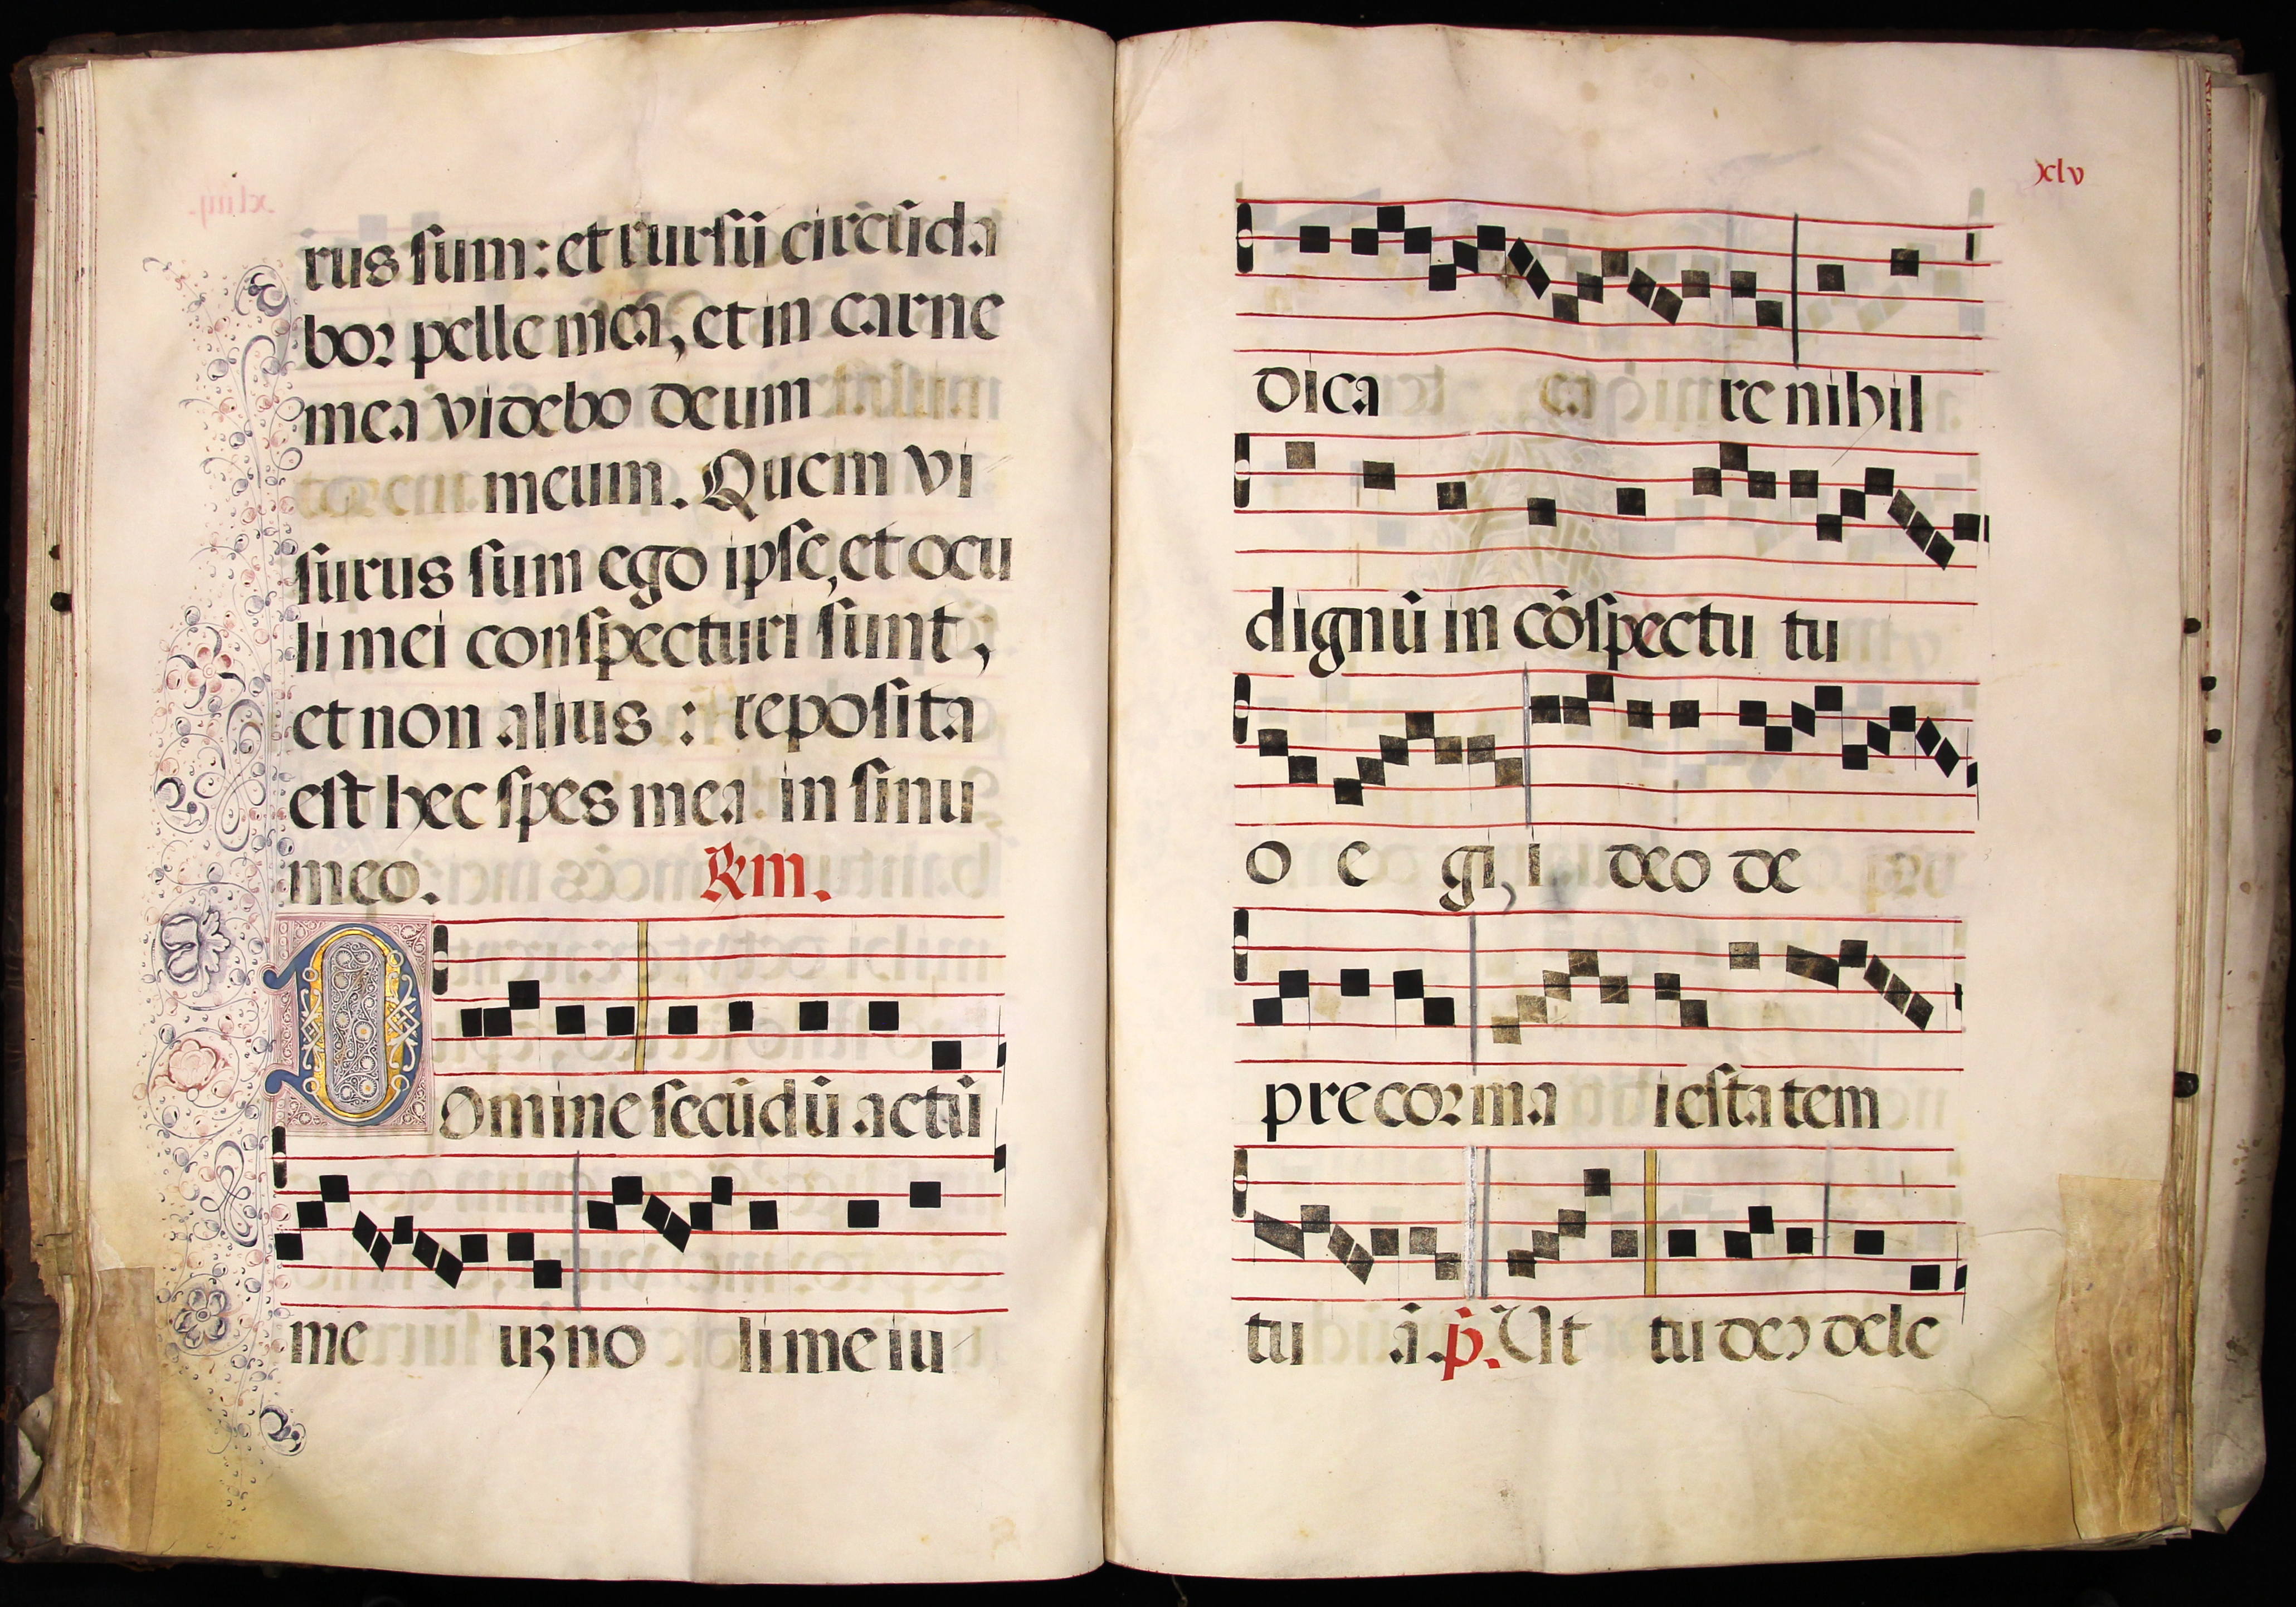 rus sum: et rursū circūda
bor pelle mea, et in carne
mea videbo deum
meum. Quem vi
surus sum ego ipse, et ocu
li mei conspecturi sunt,
et non alius : reposita
est hec spes mea in sinu
meo. Rm.
Domine secūdū actū
me uꝫ no li me iu
xlv
dica re nihil
dignū in cōspectu tu
o e gi, i deo de
precor ma iestatem
tu ā. p. Ut tu deꝰ dele